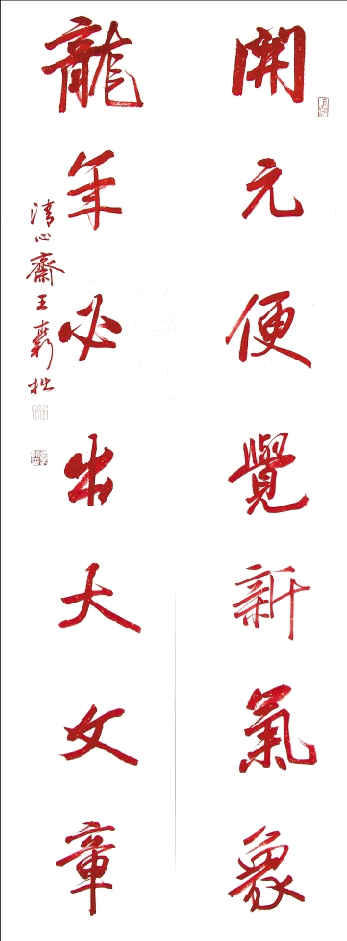 開元便覺新氣象
龍年必出大文章
清心齋王